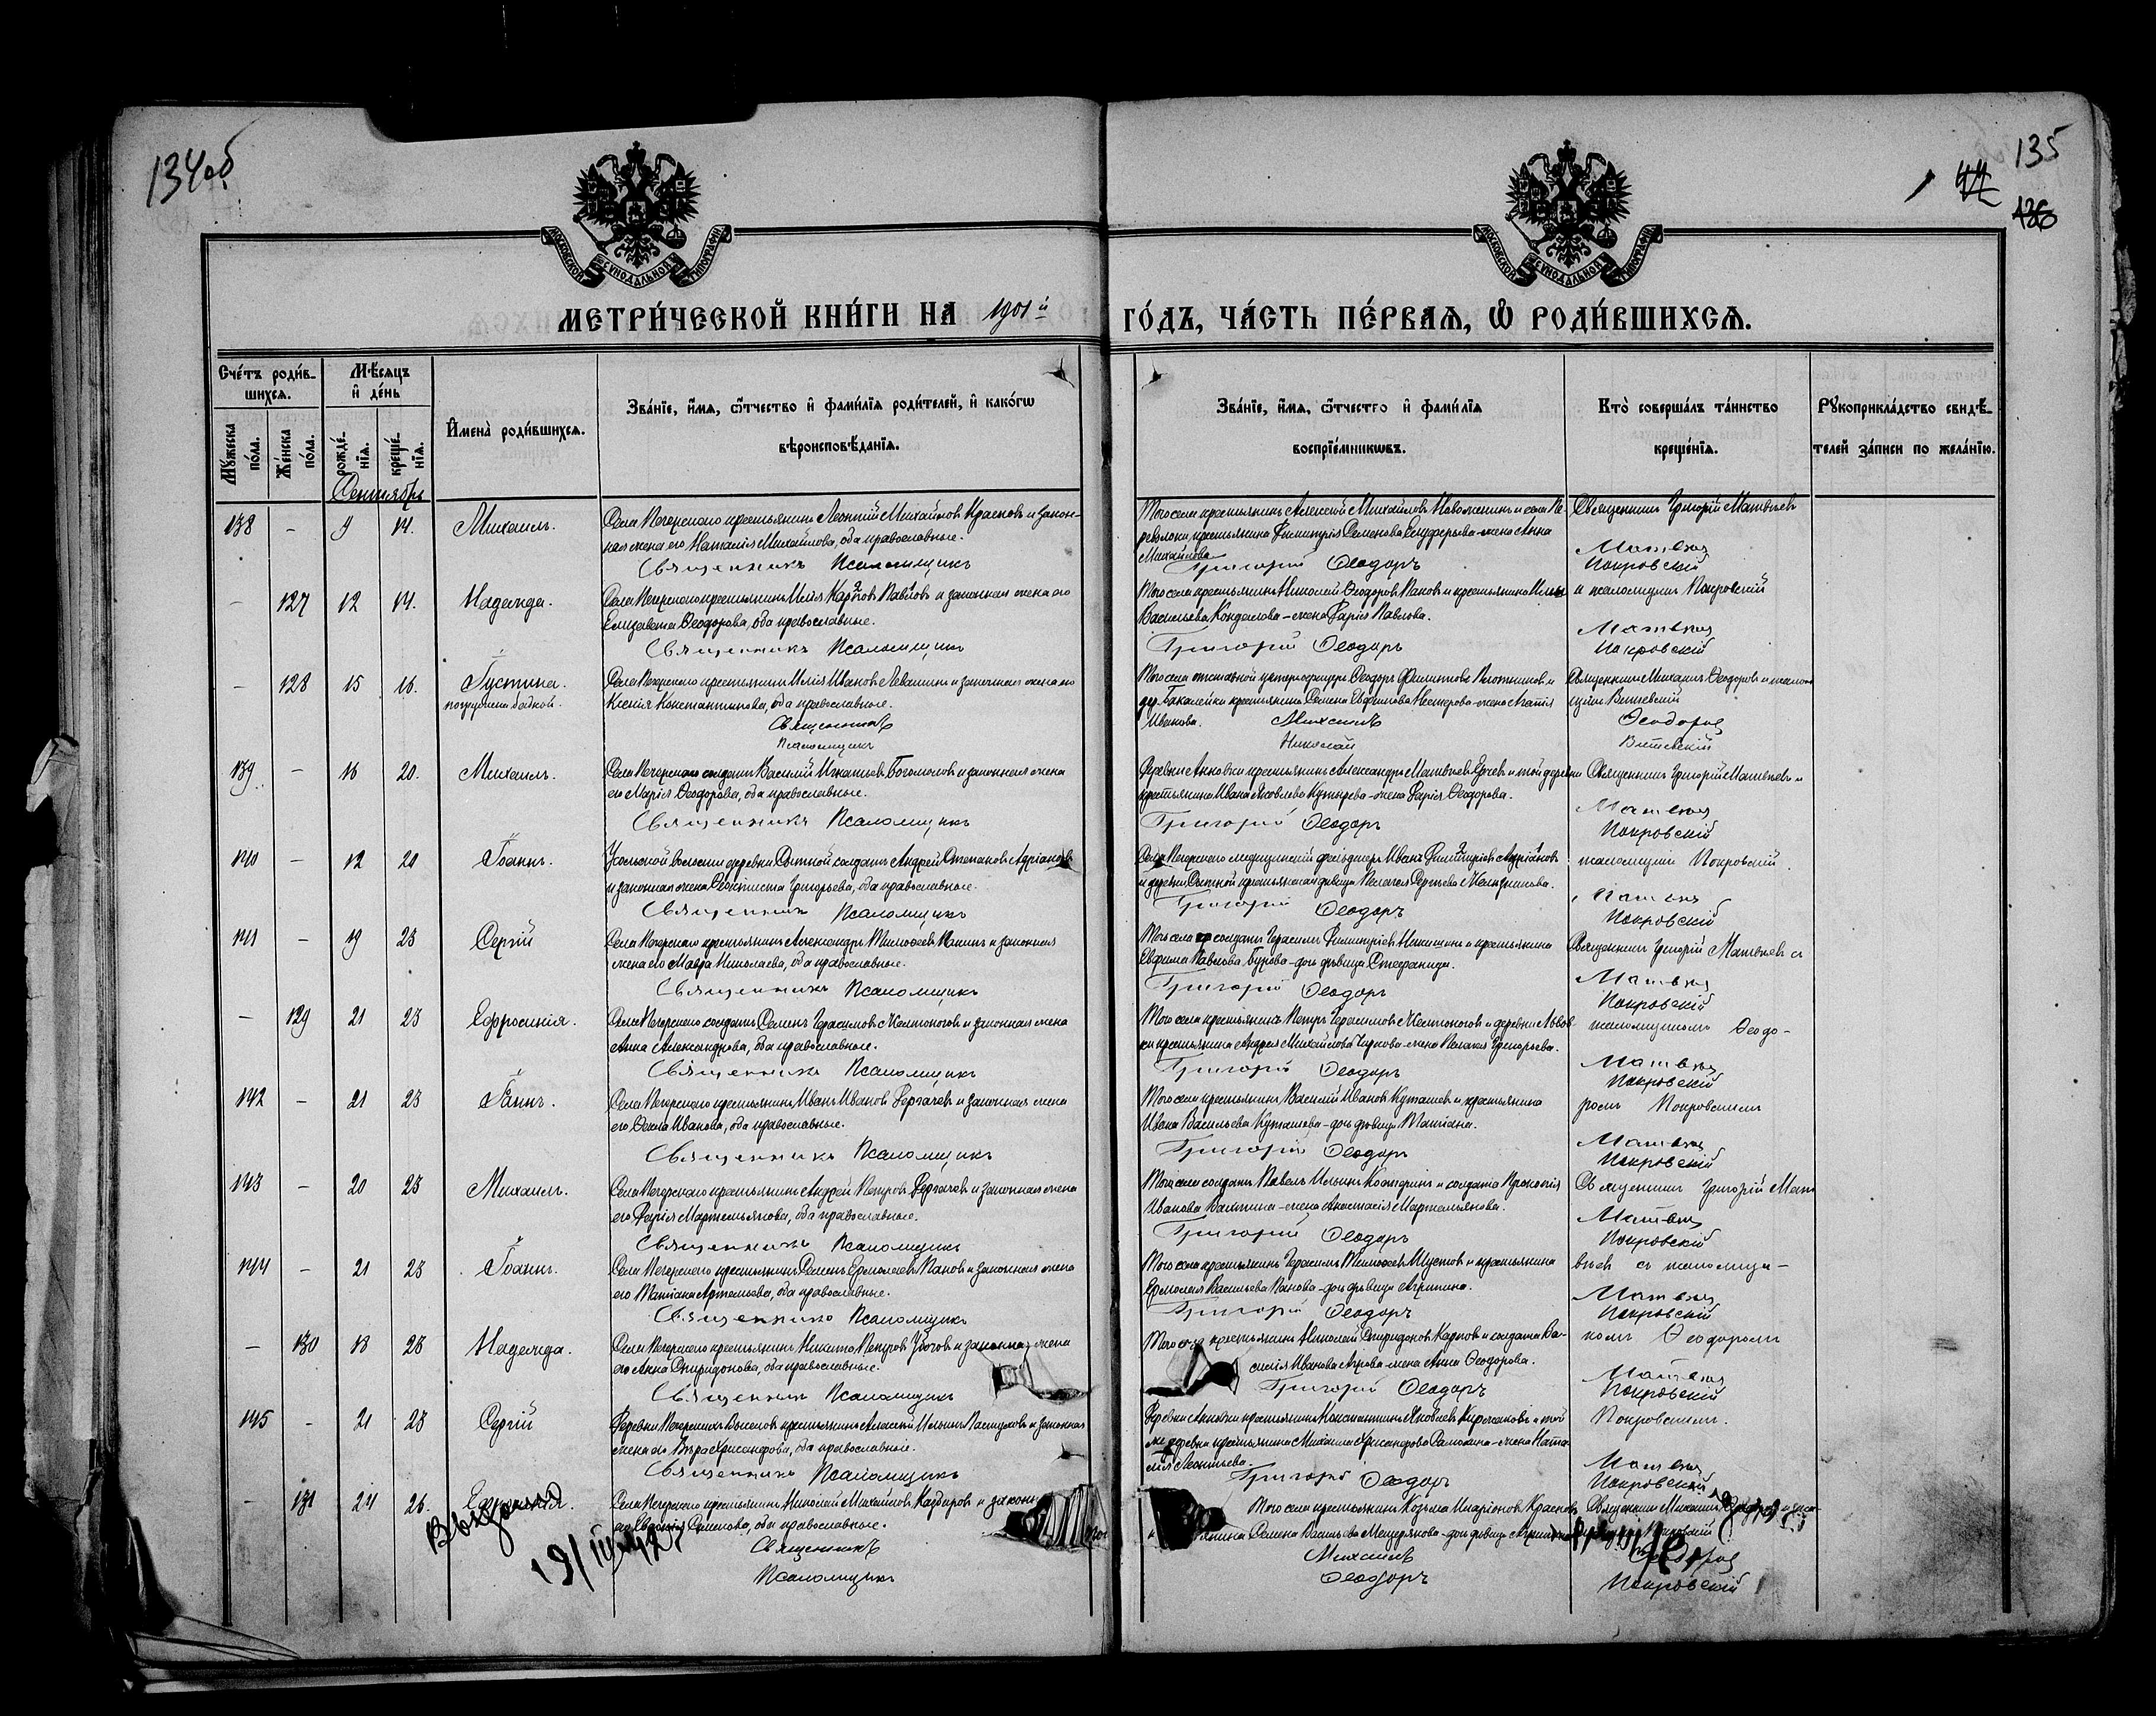 134об
135
44
136
МОСКОВСКОЙ СѴНОДАЛЬНОЙ ТИПОГРАФІИ
МОСКОВСКОЙ СѴНОДАЛЬНОЙ ТИПОГРАФІИ
МЕТРИ́ЧЕСКОЙ КНИ́ГИ НА 1901й ГО́ДЪ, ЧА́СТЬ ПЕ́РВАѦ, Ѽ РОДИ́ВШИХСѦ.
Сче́тъ роди́в-
шихсѧ.
Мѣ́сѧцъ
и҆ де́нь
Мꙋ́жеска
по́ла.
Же́нска
по́ла.
рожде́-
нїѧ.
креще́-
нїѧ.
И҆мена̀ роди́вшихсѧ.
Зва́нїе, и҆́мѧ, ѻ҆́тчество и҆ фами́лїѧ роди́телей, и҆ како́гѡ
вѣроисповѣ́данїѧ.
Зва́нїе, и҆́мѧ, ѻ҆́тчество и҆ фами́лїѧ
воспрїе́мникѡвъ.
Кто̀ соверша́лъ та́инство
креще́нїѧ.
Рꙋкоприкла́дство свидѣ́-
телей за́писи по жела́нїю.
Сентябрь
138 - 9 14. Михаилъ. Села Печерскаго крестьянинъ Леонтій Михайловъ Красновъ и закон-
ная жена его Наталія Михайлова, оба православные.
Священникъ Псаломщикъ
Того села крестьянинъ Алексей Михайловъ
крестьянина Димитрія Семенова жена Анна
Михайлова.
Григорій Ѳеодоръ
Священникъ Григорій Матвѣевъ
Матвѣевъ
Покровскій
- 127 12 14. Надежда. Села Печерскаго крестьянинъ Илія Карповъ Павловъ и законная жена его
Елизавета Ѳеодорова, оба православные.
Священникъ Псаломщикъ
Того села крестьянинъ Николай Ѳеодоровъ Пановъ и крестьянина Ильи
Васильева жена Дарія Павлова.
Григорій Ѳеодоръ
и псаломщикъ Покровскій
Матвѣевъ
Покровскій
- 128 15 16. Іустина.
погружена бабкой.
Села Печерскаго крестьянинъ Илія Ивановъ Левашинъ и законная жена его
Ксенія Константинова, оба православные.
Священникъ
Псаломщикъ
Того села отставной унтеръ-офицеръ Ѳеодоръ Филипповъ Плотниковъ и
дер. Бакалейки крестьянина Семена Евфимова Нестерова жена Агапія
Иванова.
Михаилъ
Николай
Священникъ Михаилъ Ѳеодоровъ и псалом-
щикъ Витевскій
Ѳеодоровъ
Витевскій
139 - 16 20. Михаилъ. Села Печерскаго солдатъ Василій Игнатьевъ Богомоловъ и законная жена
его Марія Ѳеодорова, оба православные.
Священникъ Псаломщикъ
Деревни Анновки крестьянинъ Александръ Матвѣевъ и той деревни
крестьянина Ивана Яковлева жена Дарія Ѳеодорова.
Григорій Ѳеодоръ
Священникъ Григорій Матвѣевъ и
Матвѣевъ
Покровскій
140 - 12 20 Іоаннъ. Усольской волости деревни Сытной солдатъ Андрей Степановъ Адріановъ
и законная жена Ѳеоктиста Григорьева, оба православные.
Священникъ Псаломщикъ
Села Печерскаго медицинскій фельдшеръ Иванъ Димитріевъ Адріановъ
и деревни Сытной крестьянская дѣвица Пелагея Сергѣева
Григорій Ѳеодоръ
псаломщикъ Покровскій.
Матвѣевъ
Покровскій
141 - 19 23 Сергій Села Печерскаго крестьянинъ Александръ Тимоѳеевъ Панинъ и законная
жена его Мавра Николаева, оба православные.
Священникъ Псаломщикъ
Того села солдатъ Герасимъ Димитріевъ Никишинъ и крестьянина
Евфима Павлова Бурова дочь дѣвица Стефанида.
Григорій Ѳеодоръ
Священникъ Григорій Матвѣевъ съ
Матвѣевъ
Покровскій
- 129 21 23 Ефросинія. Села Печерскаго солдатъ Семенъ Герасимовъ Желтоноговъ и законная жена
Анна Александрова, оба православные.
Священникъ Псаломщикъ
Того села крестьянинъ Петръ Герасимовъ Желтоноговъ и деревни Львов-
ки крестьянина Андрея Михайлова Чернова жена Пелагія Григорьева.
Григорій Ѳеодоръ
псаломщикомъ Ѳеодо-
Матвѣевъ
Покровскій
142 - 21 23 Іоаннъ. Села Печерскаго крестьянинъ Иванъ Ивановъ Дергачевъ и законная жена
его Ѳекла Иванова, оба православные.
Священникъ Псаломщикъ
Того села крестьянинъ Василій Ивановъ Куташевъ и крестьянина
Ивана Васильева Куташева дочь дѣвица Татіана.
Григорій Ѳеодоръ
ромъ Покровскимъ
Матвѣевъ
Покровскій
143 - 20 23 Михаилъ. Села Печерскаго крестьянинъ Андрей Петровъ Дергачевъ и законная жена
его Дарія Мартемьянова, оба православные.
Священникъ Псаломщикъ
Того села солдатъ Павелъ Ильинъ и солдата Прокопія
Иванова жена Анастасія Мартемьянова.
Григорій Ѳеодоръ
Священникъ Григорій Мат
Матвѣевъ
Покровскій
144 - 21 23 Іоаннъ. Села Печерскаго крестьянинъ Семенъ Ермолаевъ Пановъ и законная жена
его Татіана Артемьева, оба православные.
Священникъ Псаломщикъ
Того села крестьянинъ Герасимъ Тимоѳеевъ Шустовъ и крестьянина
Ермолая Васильева Панова дочь дѣвица Агрипина.
Григорій Ѳеодоръ
вѣевъ съ псаломщи-
Матвѣевъ
Покровскій
- 130 18 23 Надежда. Села Печерскаго крестьянинъ Никита Петровъ Убоговъ и законная жена
его Анна Спиридонова, оба православные.
Священникъ Псаломщикъ
Того села крестьянинъ Николай Спиридоновъ Карповъ и солдата Ва-
силія Иванова жена Анна Ѳеодорова.
Григорій Ѳеодоръ
комъ Ѳеодоромъ
Матвѣевъ
Покровскій
145 - 21 23 Сергій Деревни Печерскихъ Выселокъ крестьянинъ Алексій Ильинъ и законная
жена его Вѣра Хрисанфова, оба православные.
Священникъ Псаломщикъ
Деревни Анновки крестьянинъ Константинъ Яковлевъ и той
же деревни крестьянина Михаила Хрисанфова жена Ната-
лія Леонтьева.
Григорій Ѳеодоръ
Покровскимъ.
Матвѣевъ
Покровскій
- 131 24 26. Села Печерскаго крестьянинъ Николай Михайловъ и законн
его Евдокія Семенова, оба православные.
Священникъ
Псаломщикъ
Того села крестьянинъ Козьма Иларіоновъ Красновъ
Семена Васильева Мещерякова дочь дѣвица
Михаилъ
Ѳеодоръ
Священникъ Михаилъ Ѳеодоровъ и пса-
Покровскій
Ѳеодоровъ
Покровскій
Выдано
19/III 42